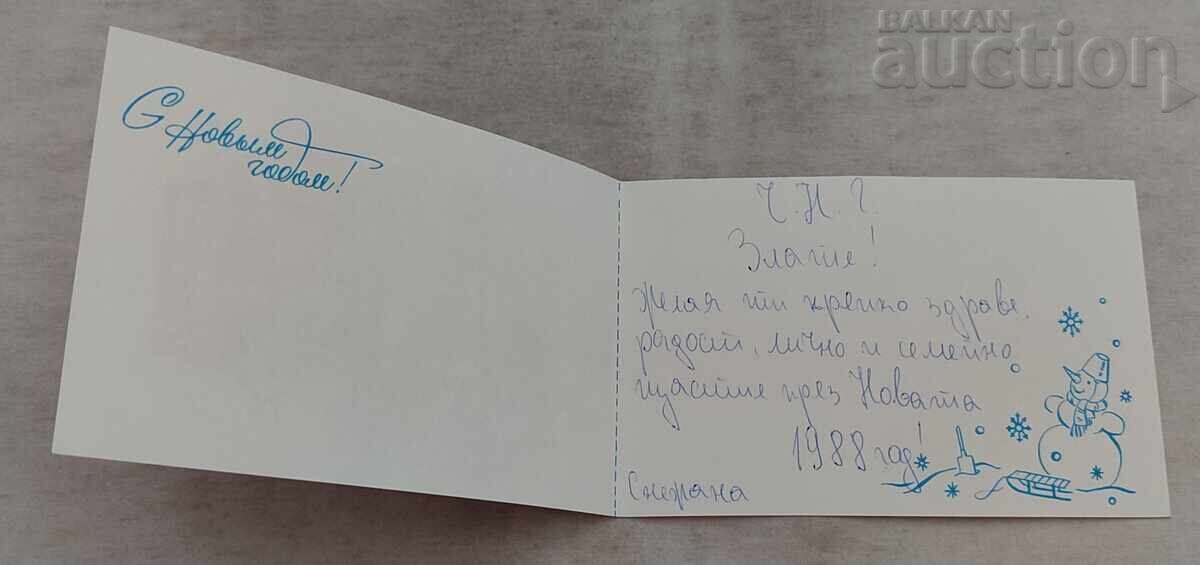 BALKAN
auction
С Новым
годом!
Ч.Н.Г.
Злате!
Желая ти крепко здраве,
радост, лично и семейно
щастие през Новата
1988 год!
Снежана